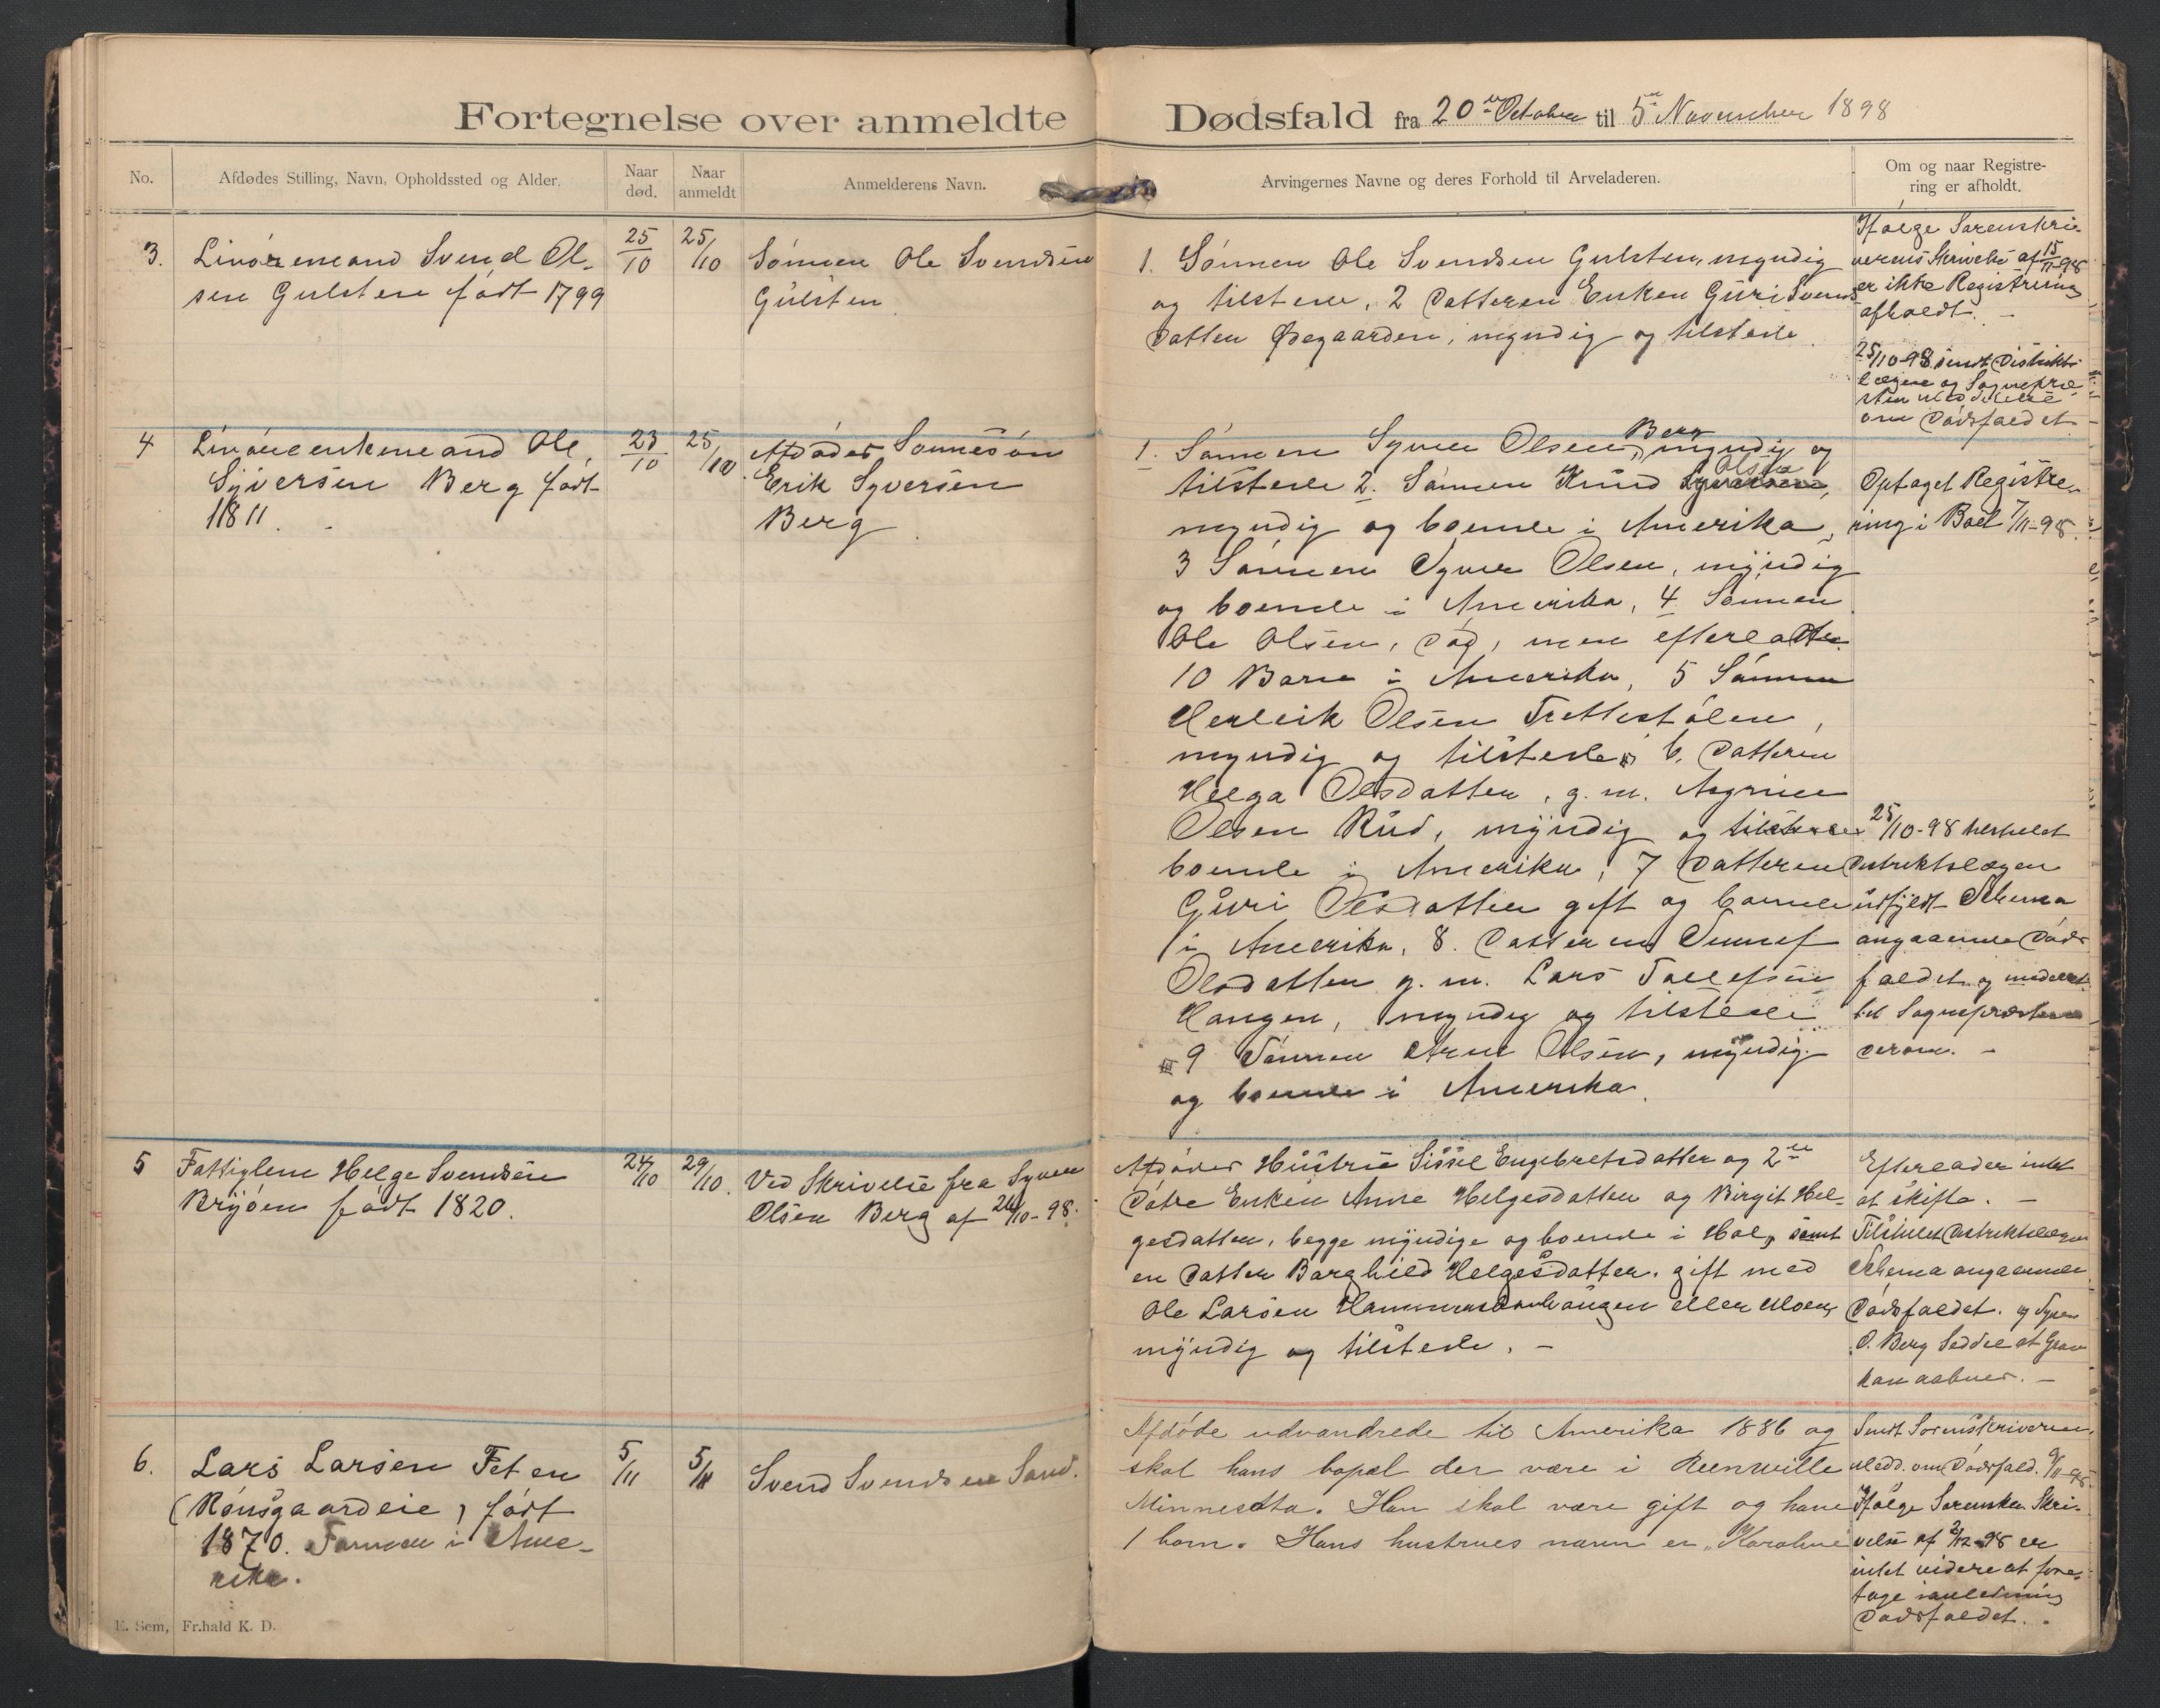 Fortegnelse over anmeldte Dødsfald fra 20de October til 5te November 1898
No.
Afdødes Stilling, Navn, Opholdssted og Alder.
Naar
død.
Naar
anmeldt
Anmelderens Navn.
Arvingernes Navne og deres Forhold til Arveladeren.
Om og naar Registre-
ring er afholdt.
3.
Svend Ol-
sen Gulsten født 1799
25/10
25/10
Sønnen Ole Svendsen
Gulsten
1. Sønnen Ole Svendsen Gulsten, myndig
og tilstede, 2 Datteren Enken Guri Svends
datter Øegaarden, myndig og tilstede.
Ifølge Sorenskri-
verens Skrivelse af 15/11-98
er ikke Registrering
afholdt. -
25/10-98 sendt Distrikts
lægen og Sognepræ-
sten meddelelse
om Dødsfaldet
4
Ole
Syversen Berg født
1811.
23/10
25/10
Afdødes Sønnesøn
Erik Syversen
Berg
1. Sønnen Syver Olsen Berg, myndig og
tilstede 2. Sønnen Knud Syversen Olsen,
myndig og boende i Amerika,
3 Sønnen Syver Olsen, myndig
og boende i Amerika, 4 Sønnen
Ole Olsen, død, men efterlatte
10 Barn i Amerika, 5 Sønnen
Herleik Olsen Trettestølen,
myndig og tilstede, 6. Datteren
Helga Olsdatter, g. m. Asgrim
Olsen Rud, myndig og tilstede
boende i Amerika, 7 Datteren
Guri Olsdatter gift og boende
i Amerika, 8. Datteren Sunnef
Olsdatter g. m. Lars Tollefsen
Haugen, myndig og tilstede
9 Sønnen Arne Olsen, myndig
og boende i Amerika.
Optaget Registre-
ring i Boet 7/11-98.
25/10-98 tilstillet
Distriktslægen
udfyldt Schema
angaaende Døds
faldet og meddelt
til Sognepræsten
derom. -
5
Fattiglem Helge Svendsen
Bryøen født 1820.
24/10
29/10.
Ved Skrivelse fra Syver
Olsen Berg af 26/10-98.
Afdødes Hustru Sissel Engebretsdatter og 2de
Døtre Enken Anne Helgesdatter og Birgit Hel-
gesdatter, begge myndige og boende i Hol, samt
en Datter Barghild Helgesdatter, gift med
Ole Larsen eller Moen,
myndig og tilstede. -
Efterlader intet
at skifte. -
Tilstillet Distriktslægen
Schema angaaende
Dødsfaldet. og Syver
O. Berg Seddel at Grav
kan aabnes. -
6.
Lars Larsen Feten
(Rønsgaardeie) født
1870. Farmer i Ame-
rika.
5/11
5/11
Svend Svendsen Sand.
Afdøde udvandrede til Amerika 1886 og
skal hans bopæl der være i Reenville
Minnesotta. Han skal være gift og have
1 barn. Hans hustrues navn er „Karoline
Sendt Sorenskriveren
medd. om Dødsfald. 9/11-98.
Ifølge Sorenskr. Skri-
velse af 2/12-98 er
intet videre at fore-
tage i anledning
Dødsfaldet.
E. Sem, Fr.hald K. D.